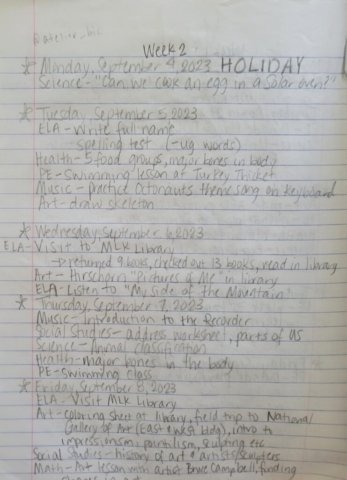 Week 2
* Monday, September 4, 2023 HOLIDAY
Science - "Can we cook an egg in a Solar oven?"
* Tuesday, September 5, 2023
ELA - Write full name
spelling test (-ug words)
Health - 5 food groups, major bones in body
PE - Swimming lesson at Turkey Thicket
Music - practice Octonauts theme song on keyboard
Art - draw skeleton
* Wednesday, September 6, 2023
ELA - Visit to MLK Library
→ returned 9 books, checked out 13 books, read in library
Art - Hirschorn "Pictures of Me" in library
ELA - Listen to "My Side of the Mountain"
* Thursday, September 7, 2023
Music - Introduction to the Recorder
Social Studies - address worksheet, parts of US
Science - Animal classification
Health - major bones in the body
PE - Swimming class
* Friday, September 8, 2023
ELA - Visit MLK Library
Art - coloring sheet at library, field trip to National
Gallery of Art (East & West bldg), intro to
impressionism, pointilism, sculpting etc
Social Studies - history of art & artists/sculpters
Math - Art lesson with artist Bruce Campbell, finding
shapes in art